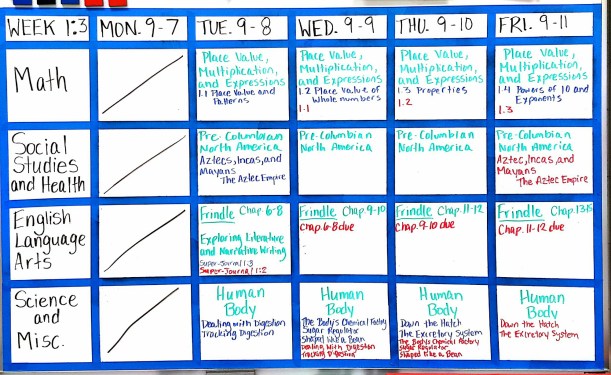 WEEK 1:3
MON. 9-7
TUE. 9-8
WED. 9-9
THU. 9-10
FRI. 9-11
Math
Place Value,
Multiplication,
and Expressions
1.1 Place Value and
Patterns
Place Value,
Multiplication,
and Expressions
1.2 Place Value of
Whole numbers
1.1
Place Value,
Multiplication,
and Expressions
1.3 Properties
1.2
Place Value,
Multiplication,
and Expressions
1.4 Powers of 10 and
Exponents
1.3
Social
Studies
and Health
Pre-Columbian
North America
Aztecs, Incas, and
Mayans
The Aztec Empire
Pre-Columbian
North America
Pre-Columbian
North America
Pre-Columbian
North America
Aztec, Incas, and
Mayans
The Aztec Empire
English
Language
Arts
Frindle Chap. 6-8
Exploring Literature
and Narrative Writing
Super-Journal 1:3
Super-Journal 1:2
Frindle Chap. 9-10
Chap. 6-8 due
Frindle Chap. 11-12
Chap. 9-10 due
Frindle Chap. 13-15
Chap. 11-12 due
Science
and
Misc.
Human
Body
Dealing with Digestion
Tracking Digestion
Human
Body
The Body's Chemical Factory
Sugar Regulator
Shaped Like a Bean
Dealing With Digestion
Tracking Digestion
Human
Body
Down the Hatch
The Excretory System
The Body's Chemical Factory
Sugar Regulator
Shaped Like a Bean
Human
Body
Down the Hatch
The Excretory System